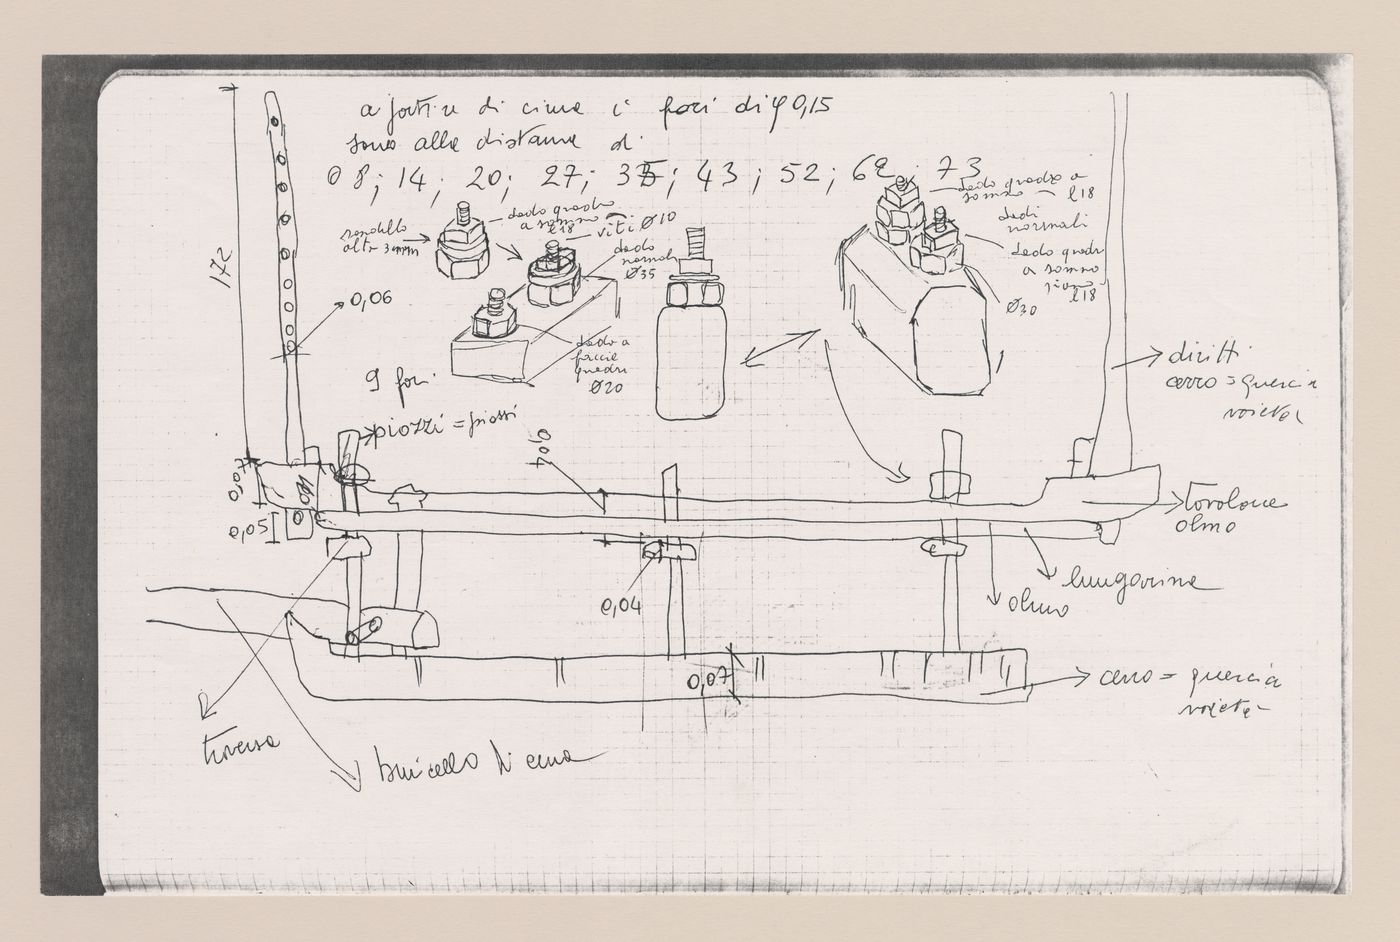 a partire di cima i fori di φ 0,15
sono alla distanza di
08; 14; 20; 27; 35; 43; 52; 62 73
rondella
alta 3mm
dado quadro
a sommo
l18
viti Ø10
dado
normale
Ø35
dado a
facce
quadre
Ø20
dado quadro a
sommo l18
dadi
normali
dado quadro
a sommo
l18
Ø30
172
0,06
9 fori
piozzi = piossi
diritti
cerro = quercia
0,04
0,05
tavolone
olmo
lungarina
olmo
0,04
0,07
cerro = quercia
traversa